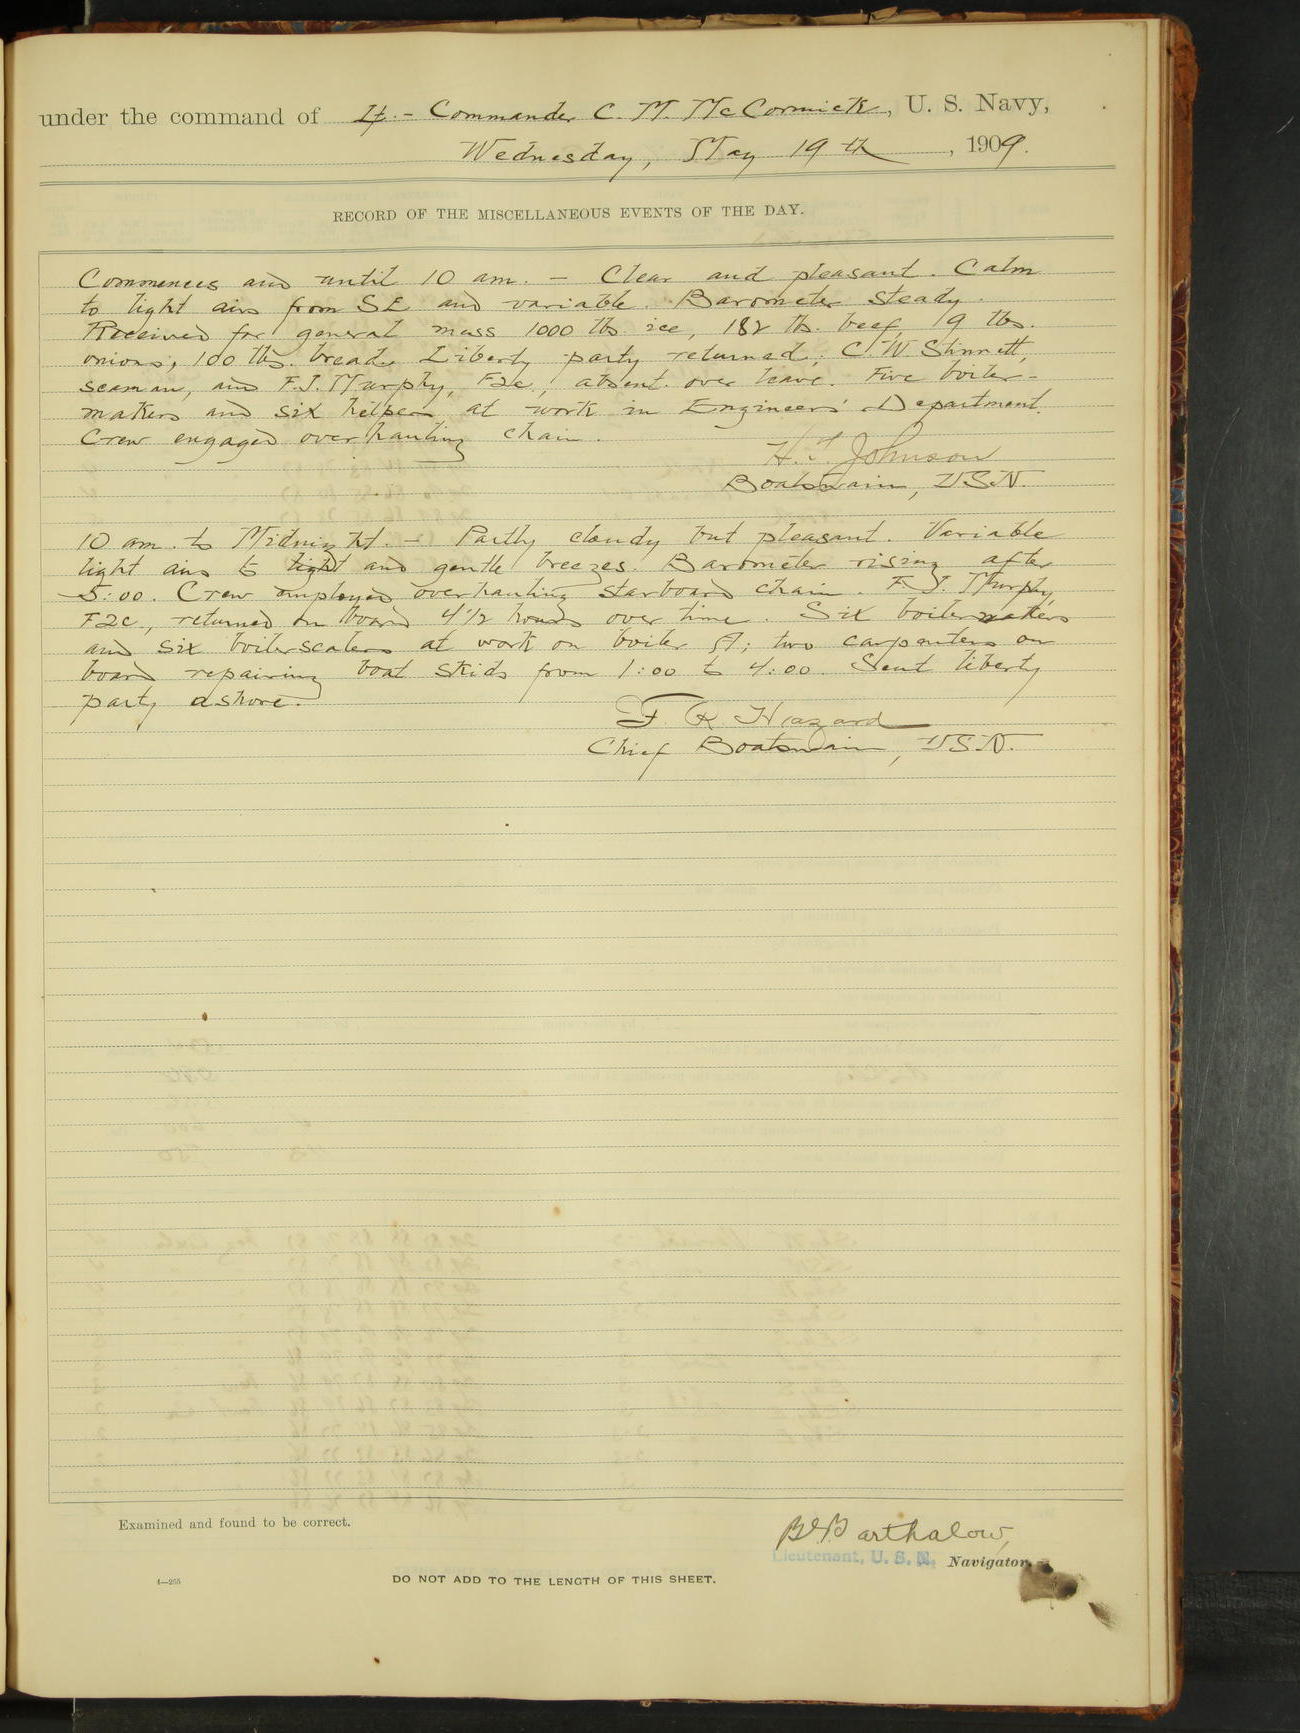 under the command of Lt.-Commander C. M. McCormick, U. S. Navy,
Wednesday, May 19th, 1909.
RECORD OF THE MISCELLANEOUS EVENTS OF THE DAY.
Commences and until 10 am. — Clear and pleasant. Calm
to light airs from SE and variable. Barometer steady.
Received for general mess 1000 lbs. ice, 182 lbs. beef, 19 lbs.
onions, 100 lbs. bread. Liberty party returned; C. W. Stinnett,
seaman, and F. J. Murphy, F2c, absent over leave. Five boiler-
makers and six helpers at work in Engineers' Department.
Crew engaged overhauling chain.
H. T. Johnson
Boatswain, USN.
10 am. to Midnight. — Partly cloudy but pleasant. Variable
light airs to light and gentle breezes. Barometer rising after
5:00. Crew employed overhauling starboard chain. F. J. Murphy,
F2c., returned on board 4 1/2 hours over time. Six boilermakers
and six boilerscalers at work on boiler A; two carpenters on
board repairing boat skids from 1:00 to 4:00. Sent liberty
party ashore.
F R Hazard
Chief Boatswain, USN.
Examined and found to be correct.
Barthalow,
Lieutenant, U. S. N. Navigator.
4—265
DO NOT ADD TO THE LENGTH OF THIS SHEET.